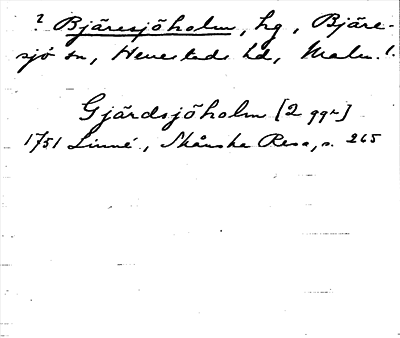 ? Bjäresjöholm, hg, Bjäre-
sjö sn, Herrestads hd, Malm. l.
Gjärdsjöholm [2 ggr]
1751 Linné, Skånska Resa, s. 265